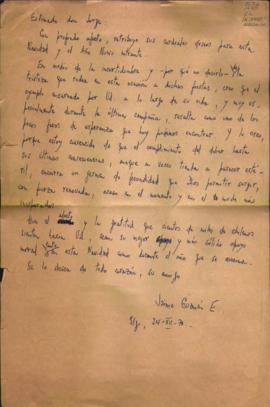 Estimado don Jorge
Con profundo afecto, retribuyo sus cordiales deseos para esta
Navidad y el Año Nuevo
En medio de la incertidumbre y -por qué no decirlo- de la
tristeza que rodea en esta ocasión a dichas fiestas, creo que el
ejemplo encarnado por Ud. a lo largo de su vida, y muy es-
pecialmente durante la última campaña, resulta como uno de los
pocos focos de esperanza que hoy podemos encontrar. Y lo creo,
porque estoy convencido de que el cumplimiento del deber hasta
sus últimas consecuencias, aunque a veces tienda a parecer esté-
ril, encierra un germen de fecundidad que Dios permitirá surgir,
con fuerza renovada, acaso en el momento y en el modo más
inesperados.
Que el afecto y la gratitud que cientos de miles de chilenos
sienten hacia Ud., sean su mejor y más sólido apoyo
moral, tanto en esta Navidad como durante el año que se avecina.
Se lo desea de todo corazón, su amigo
Jaime Guzmán E.
Stgo, 24-XII-70.